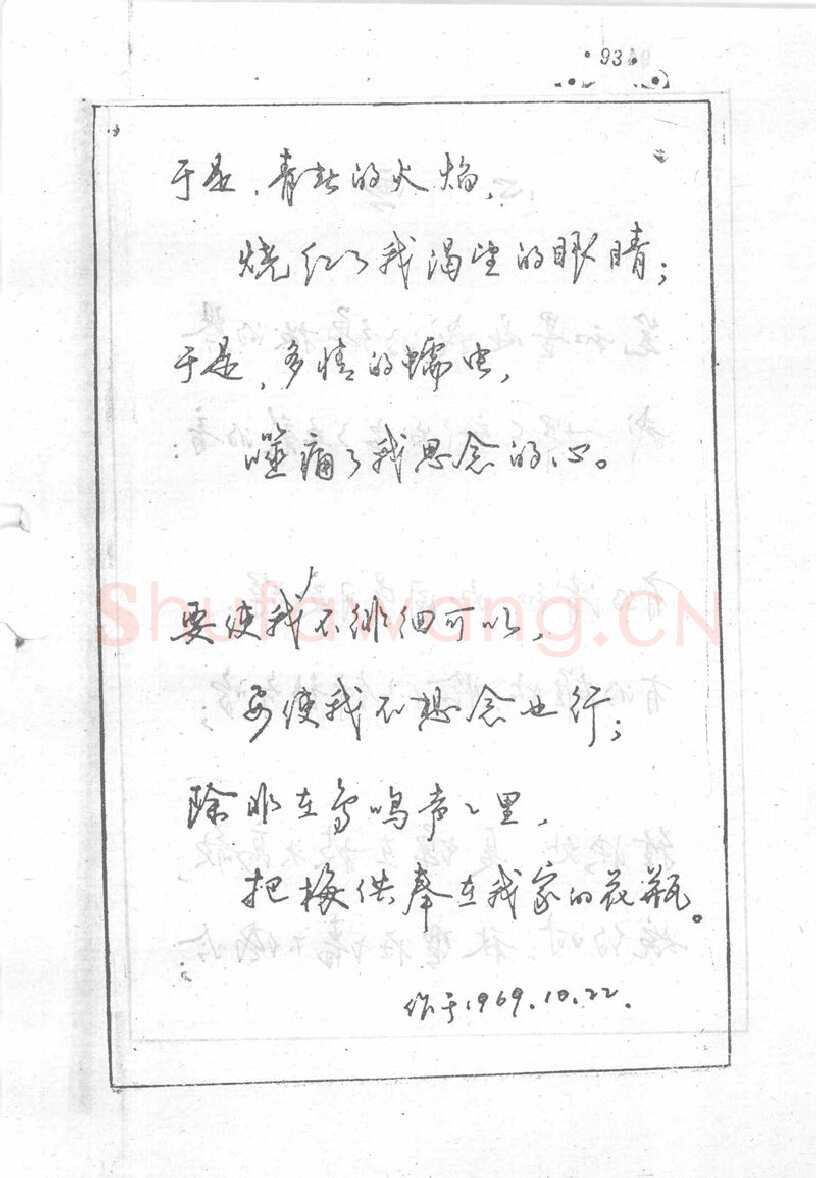 93
于是，青春的火焰，
烧红了我渴望的眼睛；
于是，多情的蠕虫，
噬痛了我思念的心。
要使我不徘徊可以，
要使我不想念也行；
除非在鸟鸣声声里，
把梅供奉在我家的花瓶。
作于1969.10.22.
Shufawang.CN